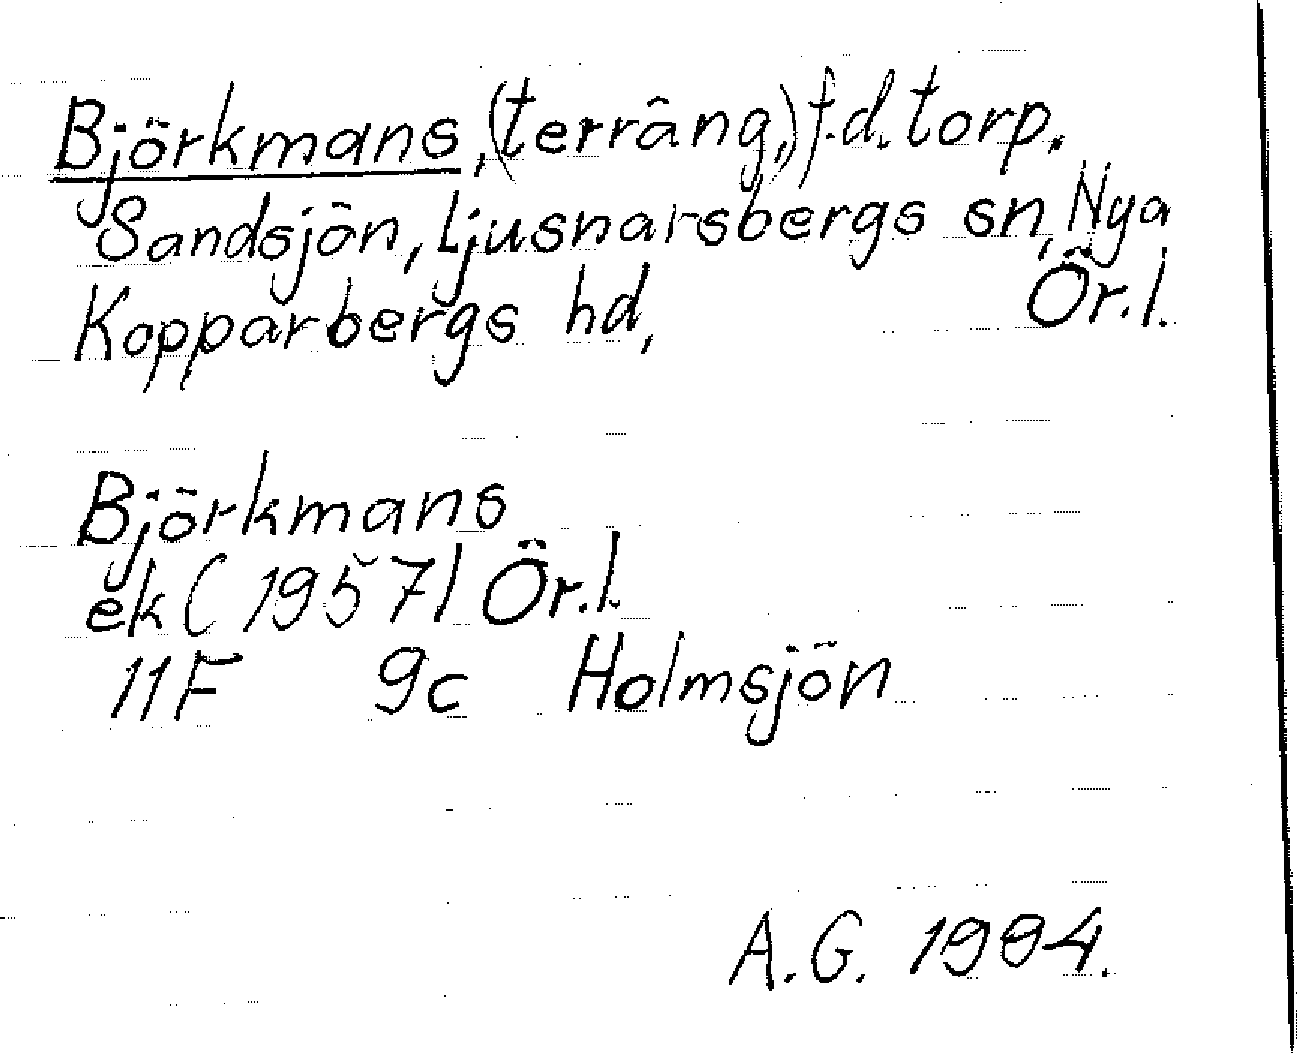 Björkmans, (terräng,) f.d. torp.
Sandsjön, Ljusnarsbergs sn, Nya
Kopparbergs hd, Ör.l.
Björkmans
ek (1957) Ör.l.
11F 9c Holmsjön
A.G. 1994.